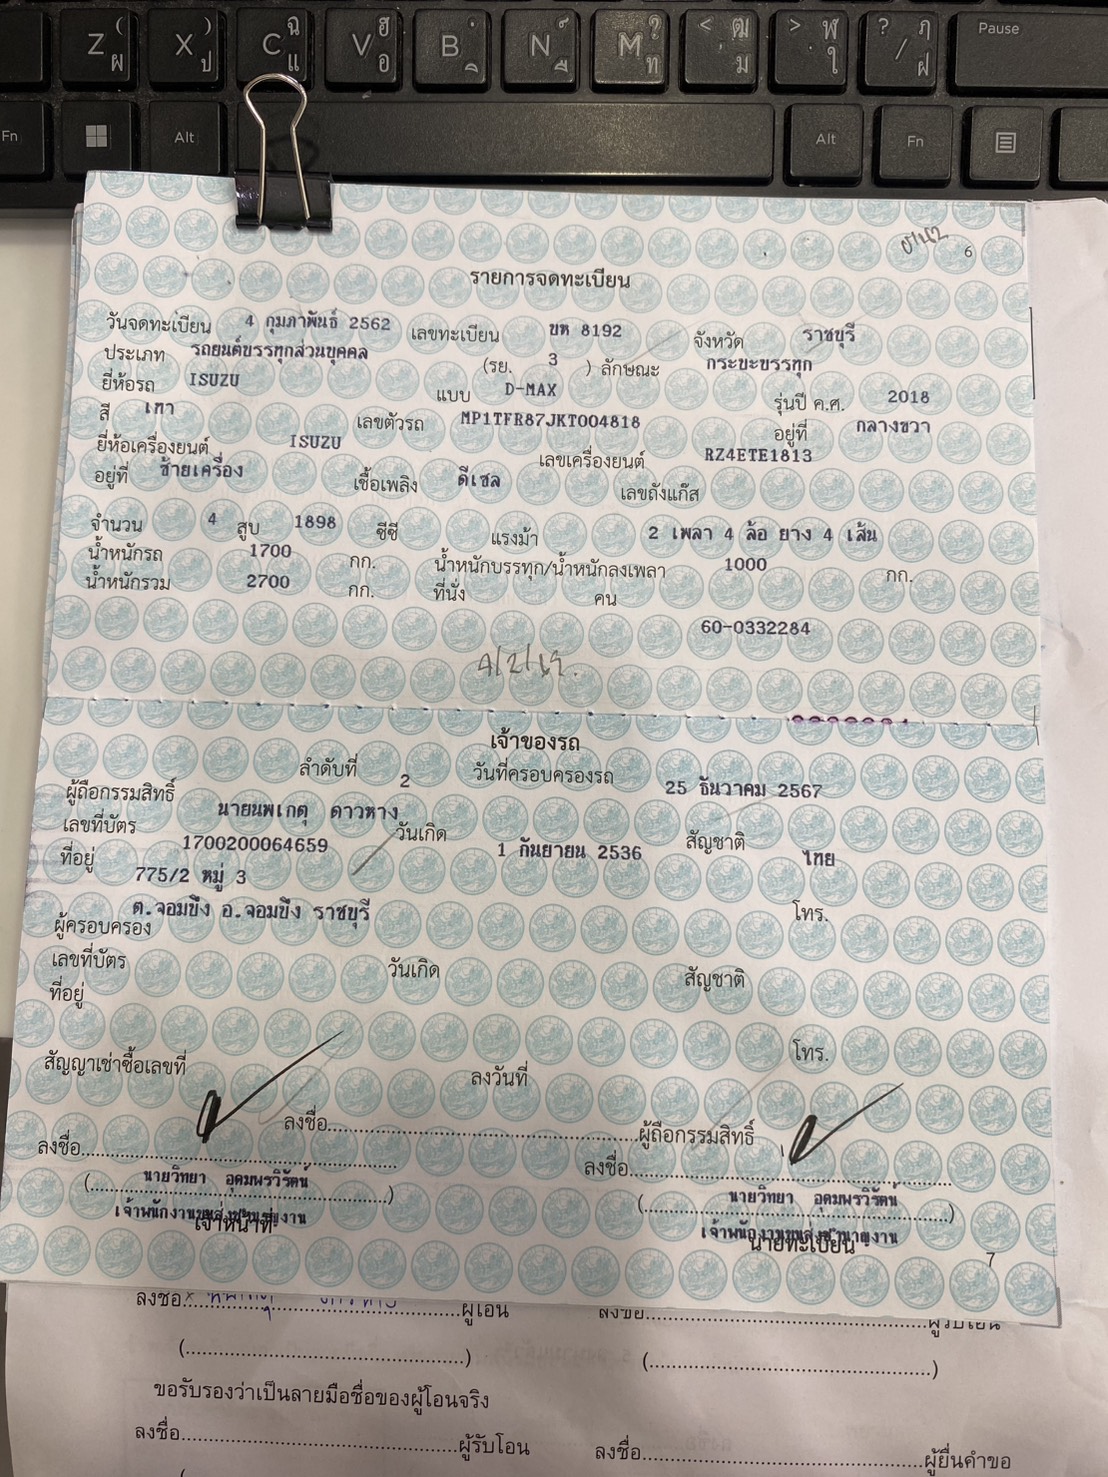 Z ( ผ
X ) ป
C ฉ แ
V ฮ อ
B
N
M ? ท
< ฒ , ม
> ฬ . ใ
? ฦ / ฝ
Pause
Fn
Alt
Alt
Fn
6
รายการจดทะเบียน
วันจดทะเบียน 4 กุมภาพันธ์ 2562 เลขทะเบียน บห 8192 จังหวัด ราชบุรี
ประเภท รถยนต์บรรทุกส่วนบุคคล (รย. 3 ) ลักษณะ กระบะบรรทุก
ยี่ห้อรถ ISUZU แบบ D-MAX รุ่นปี ค.ศ. 2018
สี เทา เลขตัวรถ MP1TFR87JKT004818 อยู่ที่ กลางขวา
ยี่ห้อเครื่องยนต์ ISUZU เลขเครื่องยนต์ RZ4ETE1813
อยู่ที่ ซ้ายเครื่อง เชื้อเพลิง ดีเซล เลขถังแก๊ส
จำนวน 4 สูบ 1898 ซีซี แรงม้า 2 เพลา 4 ล้อ ยาง 4 เส้น
น้ำหนักรถ 1700 กก. น้ำหนักบรรทุก/น้ำหนักลงเพลา 1000 กก.
น้ำหนักรวม 2700 กก. ที่นั่ง คน
60-0332284
เจ้าของรถ
ลำดับที่ 2 วันที่ครอบครองรถ 25 ธันวาคม 2567
ผู้ถือกรรมสิทธิ์ นายนพเกตุ ดาวหาง
เลขที่บัตร 1700200064659 วันเกิด 1 กันยายน 2536 สัญชาติ ไทย
ที่อยู่ 775/2 หมู่ 3
ต.จอมบึง อ.จอมบึง ราชบุรี โทร.
ผู้ครอบครอง
เลขที่บัตร วันเกิด สัญชาติ
ที่อยู่
โทร.
สัญญาเช่าซื้อเลขที่ ลงวันที่
ลงชื่อ........................................ผู้ถือกรรมสิทธิ์
ลงชื่อ........................................ ลงชื่อ........................................
(นายวิทยา อุดมพรวิรัตน์) (นายวิทยา อุดมพรวิรัตน์)
เจ้าพนักงานขนส่งชำนาญงาน เจ้าพนักงานขนส่งชำนาญงาน
เจ้าหน้าที่ นายทะเบียน
7
ลงชื่อ........................................ผู้โอน ลงชื่อ........................................ผู้รับโอน
(........................................) (........................................)
ขอรับรองว่าเป็นลายมือชื่อของผู้โอนจริง
ลงชื่อ........................................ผู้รับโอน ลงชื่อ........................................ผู้ยื่นคำขอ